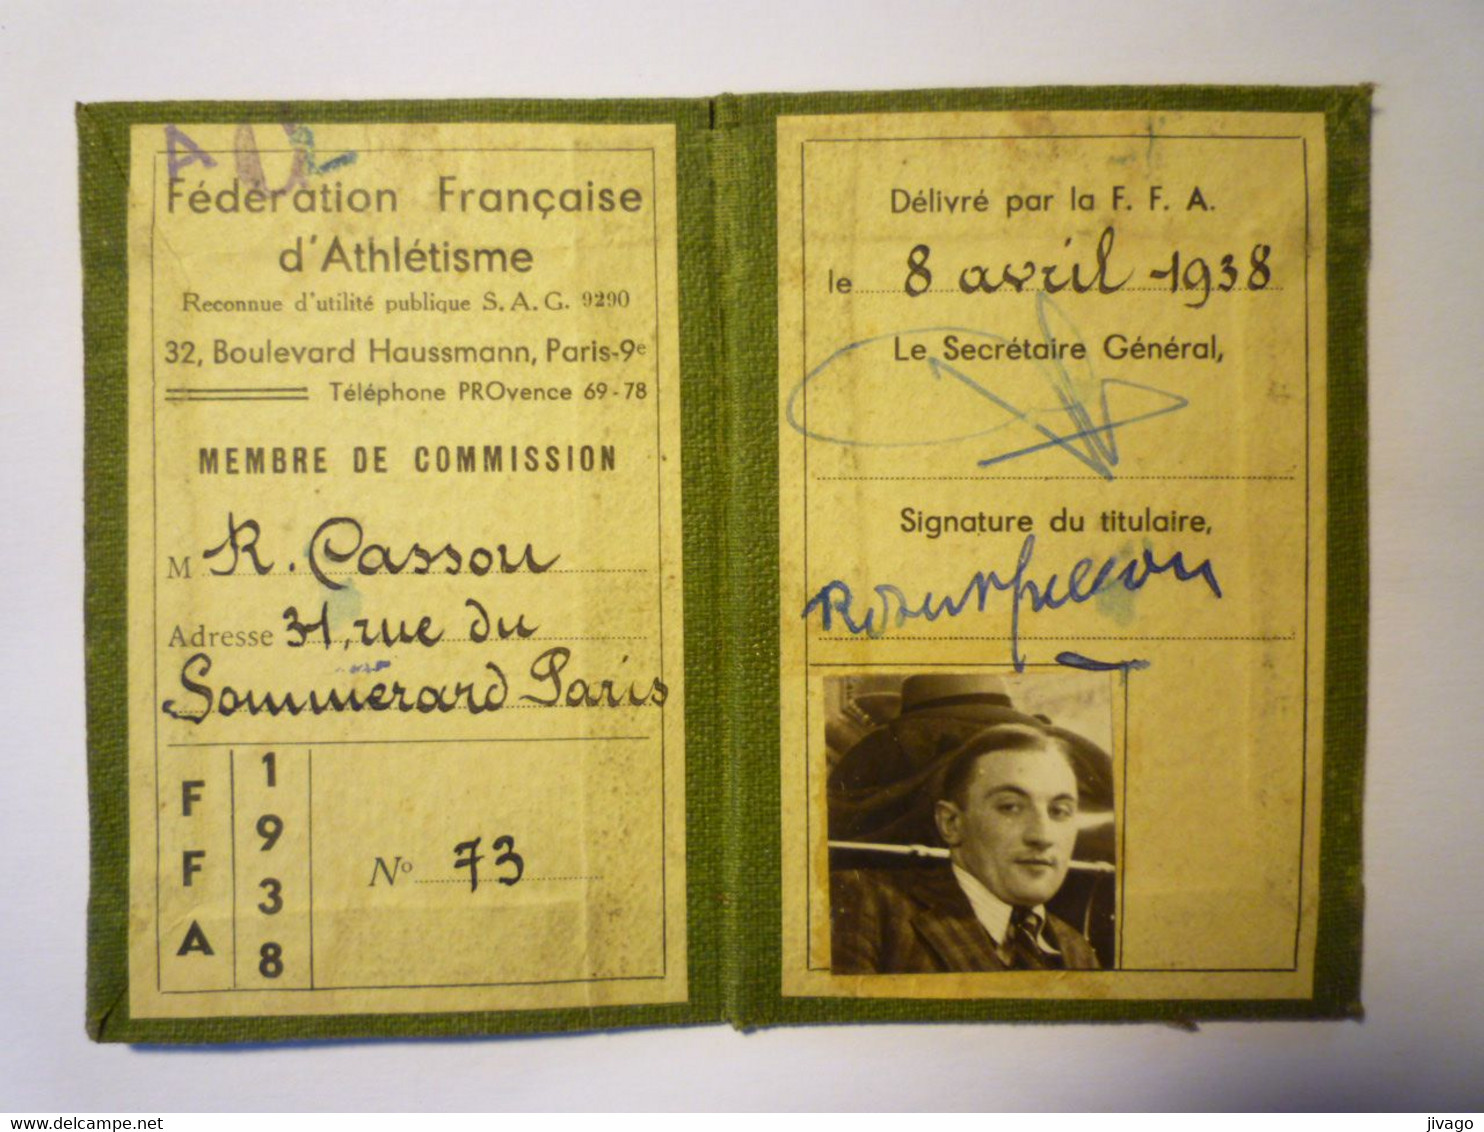 A
Fédération Française
d'Athlétisme
Reconnue d'utilité publique S. A. G. 9290
32, Boulevard Haussmann, Paris-9e
Téléphone PROvence 69-78
MEMBRE DE COMMISSION
M R. Cassou
Adresse 31, rue du
Sommerard Paris
FFA
1938
No 73
Délivré par la F. F. A.
le 8 avril 1938
Le Secrétaire Général,
Signature du titulaire,
delcampe.net
jivago